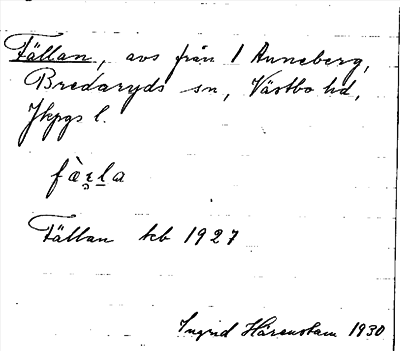 Fällan, avs från 1 Anneberg,
Bredaryds sn, Västbo hd,
Jkpgs l.
Fällan kb 1927
Ingrid Härenstam 1930